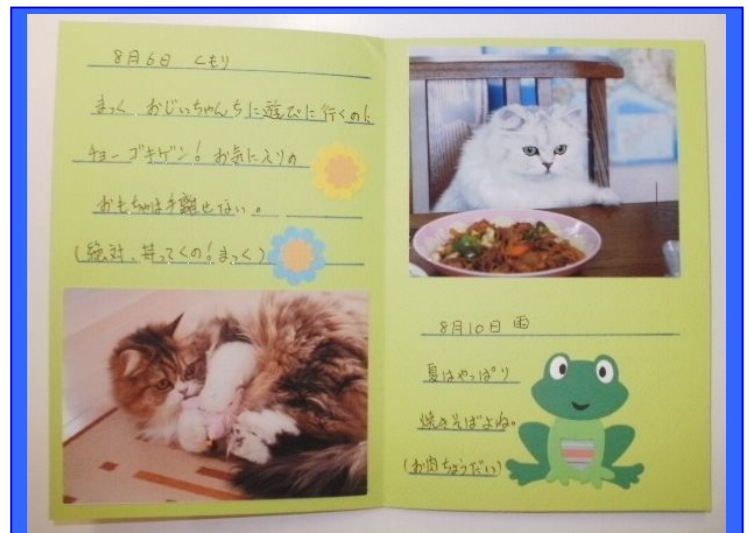 8月6日 くもり
まっく おじいちゃんちに遊びに行くのに
チョーゴキゲン! お気に入りの
おもちゃは手離せない。
(絶対、持ってくの!まっく)
8月10日 雨
夏はやっぱり
焼きそばよね。
(お肉ちょうだい)